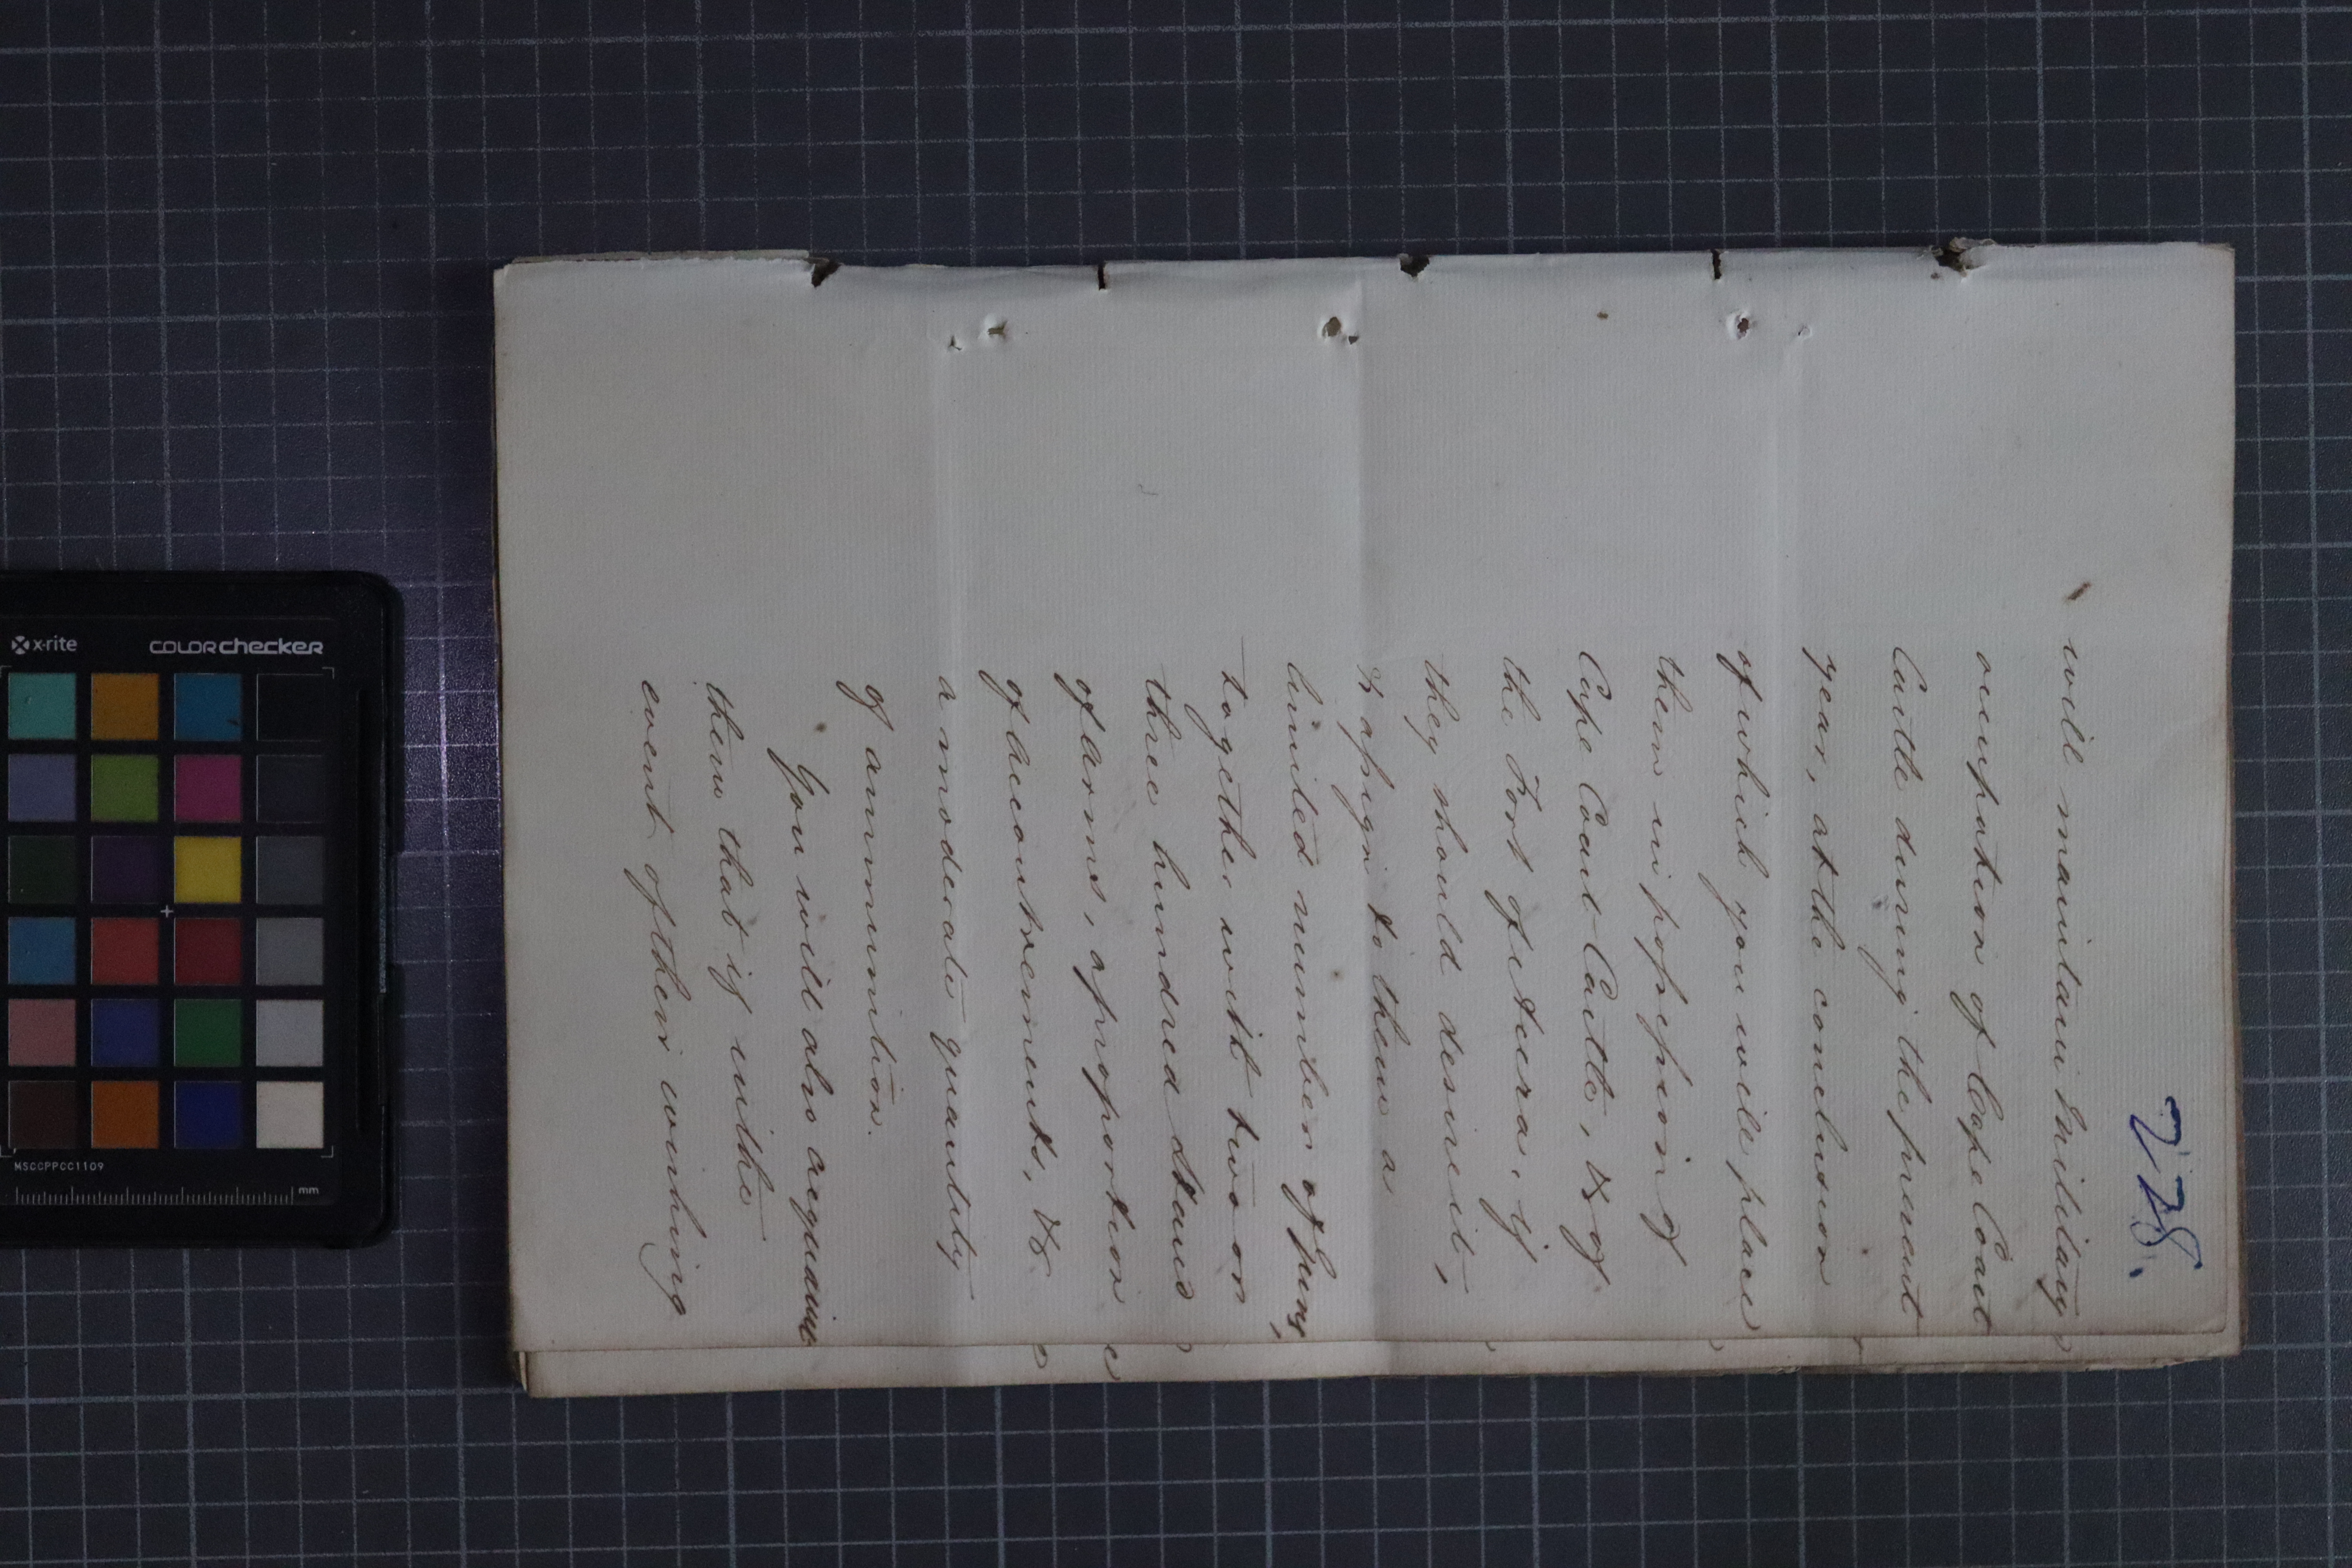 228.
will maintain Military
occupation of Cape Coast
Castle during the present
year, at the conclusion
of which you will place
them in possession of
Cape Coast Castle, & of
the Fort of Accra, if
they should desire it,
& assign to them a
limited number of Guns,
together with two or
three hundred Stand
of Arms, a proportion
of Accoutrements, &
a moderate quantity
of ammunition.
You will also acquaint
them that if in the
event of their working
x-rite
COLORchecker
MSCCPPCC1109
mm